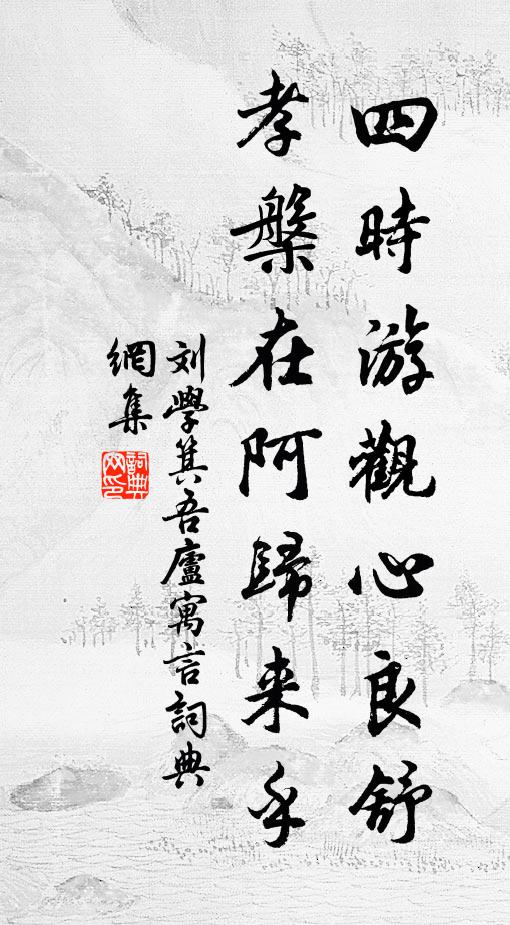 四時游觀心良舒
考槃在阿歸来乎
刘學箕吾廬寓言詞典
網集
詞典
网印